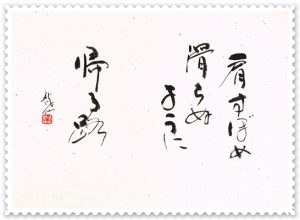 肩すぼめ
滑らぬ
ように
帰る路